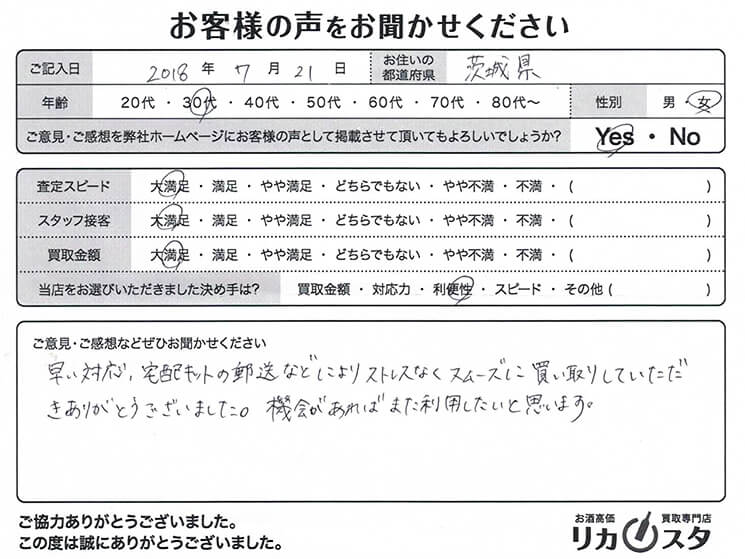 お客様の声をお聞かせください
ご記入日 2018 年 7 月 21 日 お住いの都道府県 茨城県
年齢 20代 ・ 30代 ・ 40代 ・ 50代 ・ 60代 ・ 70代 ・ 80代〜 性別 男 ・ 女
ご意見・ご感想を弊社ホームページにお客様の声として掲載させて頂いてもよろしいでしょうか? Yes ・ No
査定スピード 大満足 ・ 満足 ・ やや満足 ・ どちらでもない ・ やや不満 ・ 不満 ・ ( )
スタッフ接客 大満足 ・ 満足 ・ やや満足 ・ どちらでもない ・ やや不満 ・ 不満 ・ ( )
買取金額 大満足 ・ 満足 ・ やや満足 ・ どちらでもない ・ やや不満 ・ 不満 ・ ( )
当店をお選びいただきました決め手は? 買取金額 ・ 対応力 ・ 利便性 ・ スピード ・ その他 ( )
ご意見・ご感想などぜひお聞かせください
早い対応、宅配キットの郵送などによりストレスなくスムーズに買い取りしていただ
きありがとうございました。機会があればまた利用したいと思います。
ご協力ありがとうございました。
この度は誠にありがとうございました。
お酒高価 買取専門店
リカスタ